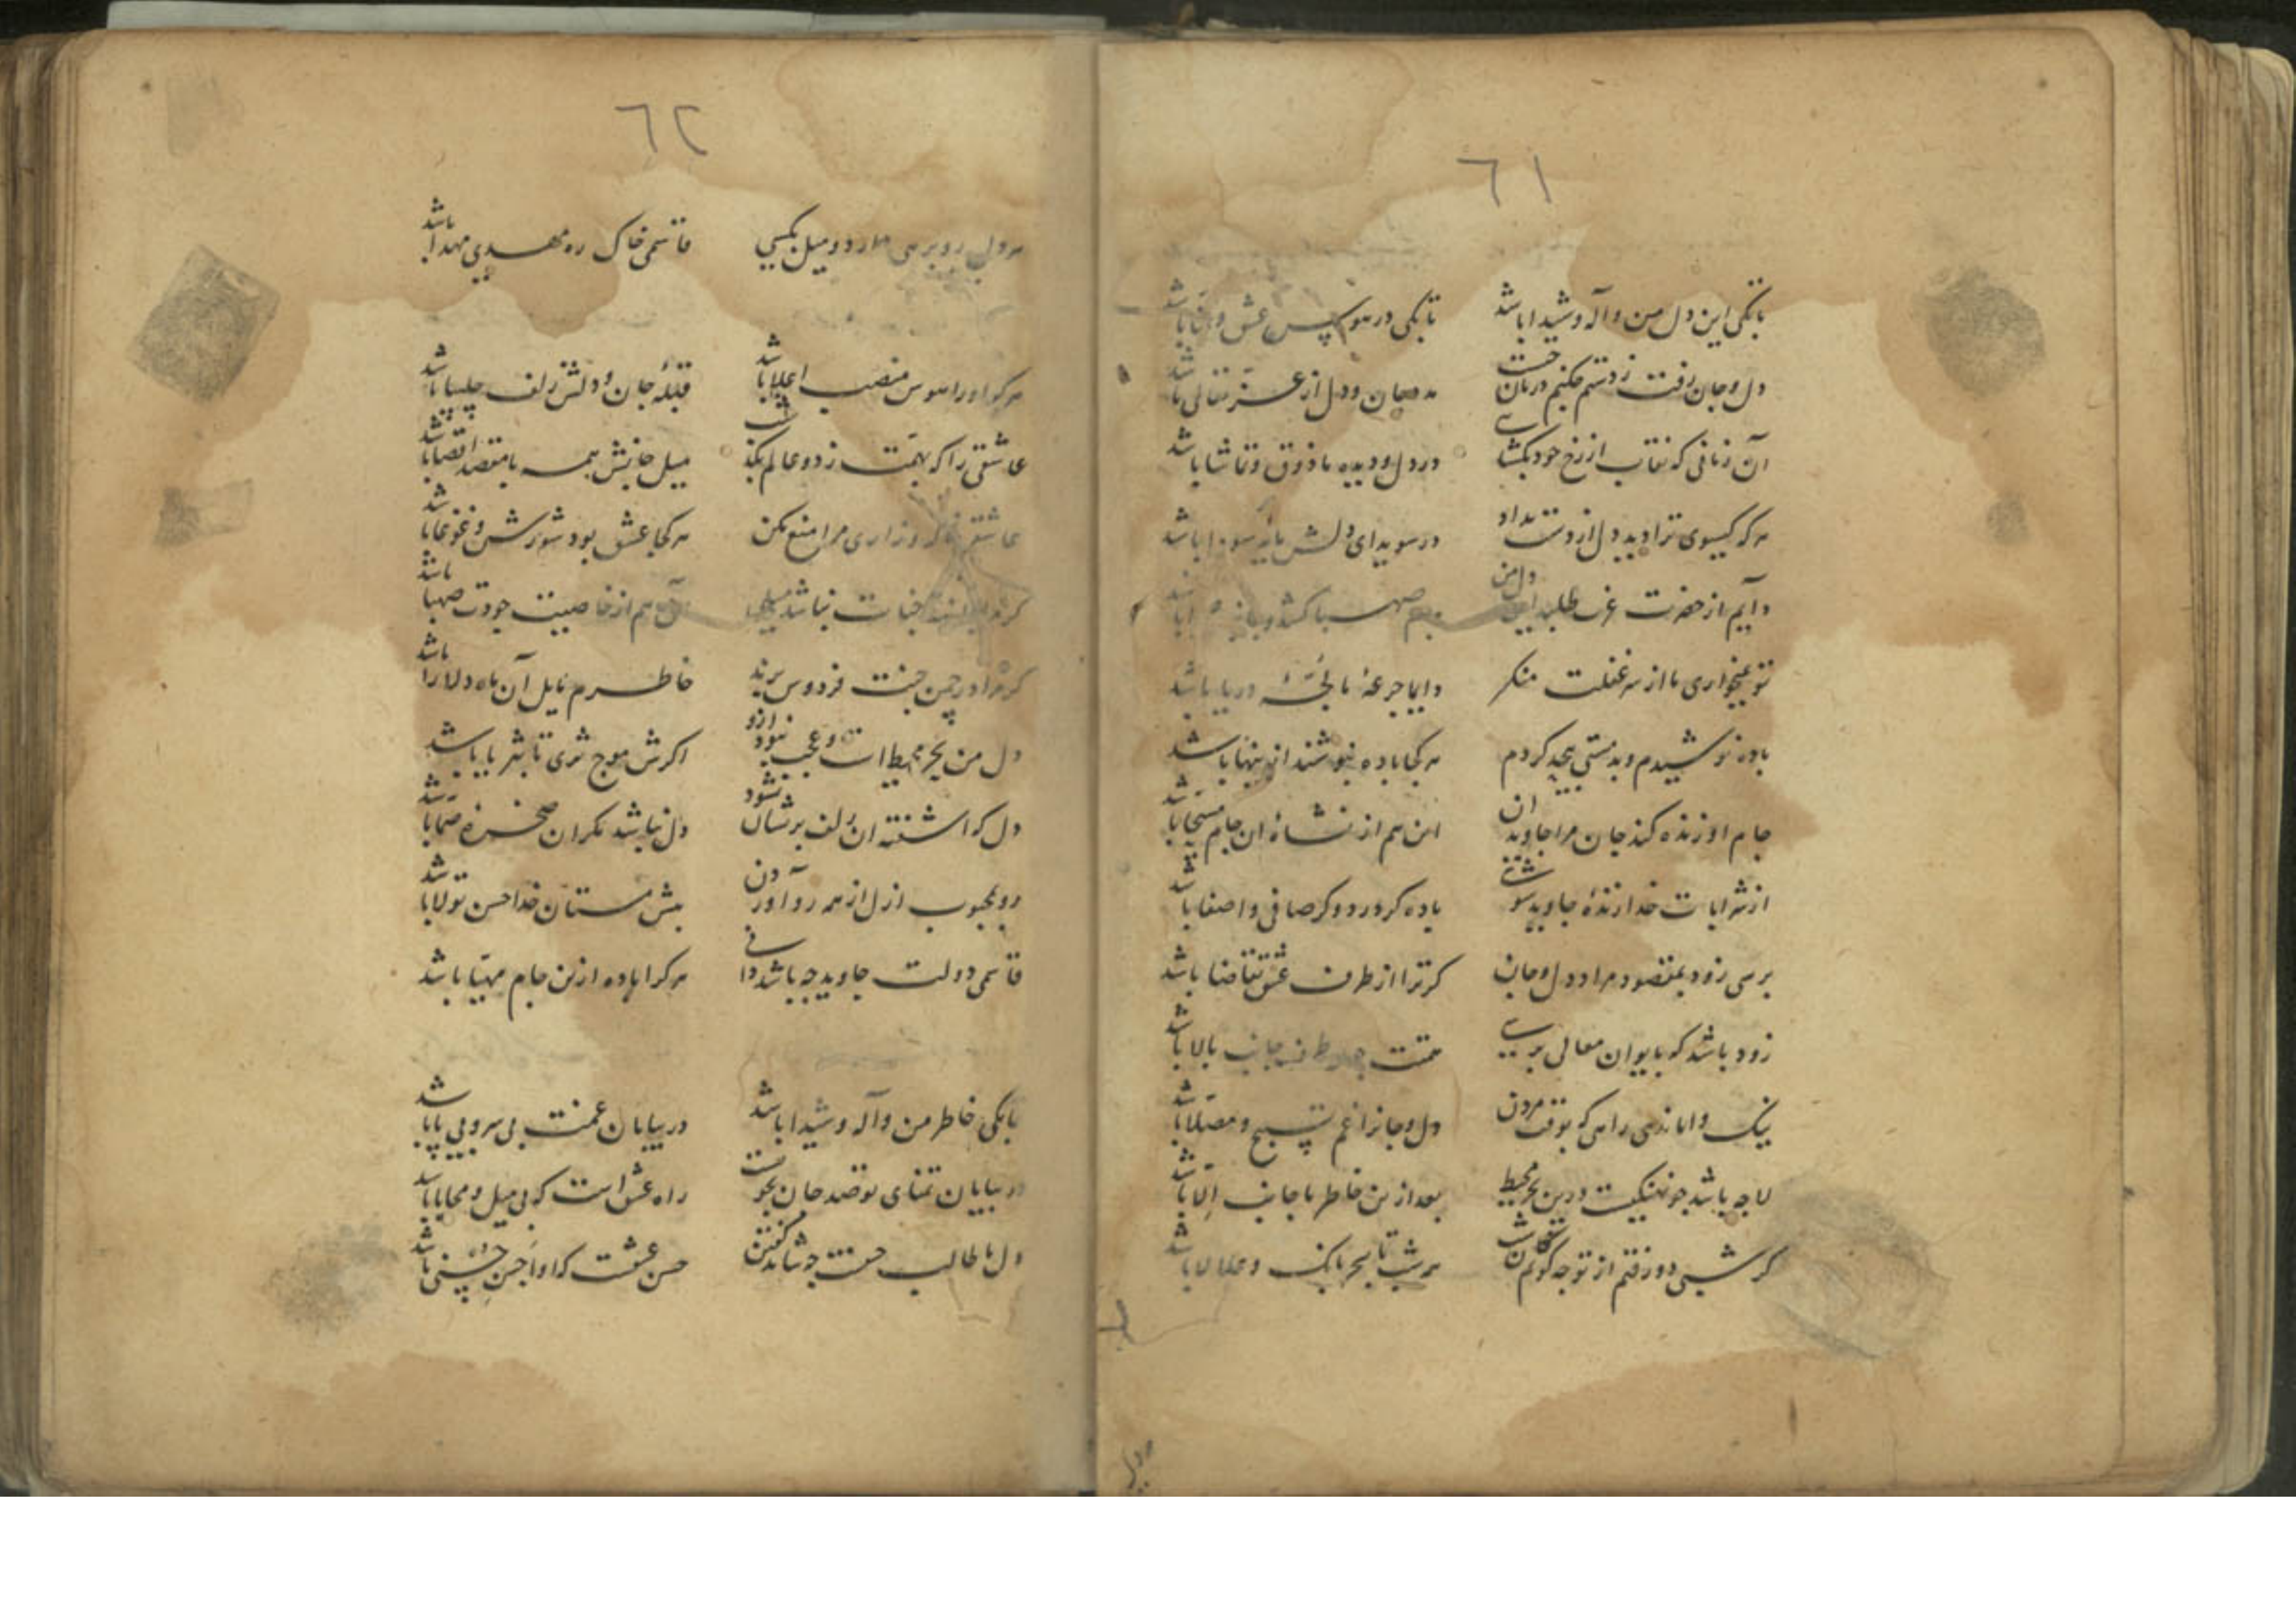 ٦١
تا بکی این دل من واله و شیدا باشد تا بکی در هوس عشق و تمنا باشد
دل و جان رفت ز دستم چکنم درمان چیست جان و دل از تعالی باشد
آن زمانی که نقاب از رخ خود بکشایی در دل و دیده ما ذوق و تماشا باشد
هر که کیسوی ترا دید دل از دست بداد در سویدای دلش مایه سودا باشد
دایم از حضرت طلبد دل من صهبا کشد و باشد
تو بخواری ما از سر غفلت منکر دایما جرعه ما لجه دریا باشد
باده نوشیدم و بدمستی بیحد کردم هر کجا باده بنوشند ازینها باشد
جام او زنده کند جان مرا جاویدان این هم از نشاه ان جام مسیحا باشد
از شرابات خدا زنده جاوید شوی باده کر درد و کر صافی و اصفا باشد
برسی زود بمقصود مراد دل و جان کر ترا از طرف عشق تقاضا باشد
زود باشد که بایوان معالی برسی همتت چون طرف جانب بالا باشد
نیک واماندهی راهی که بوقت مردن دل و جانرا غم تسبیح و مصلا باشد
لا چه باشد چو نهنکیست درین بحر محیط بعد ازین خاطر ما جانب الا باشد
کر شبی دور فتم از تو چه کویم هر شب تا سحر بانک و عللا باشد
هر دل
٦٢
هر دل رو برهی دارد و میل بکسی قاسمی خاک ره مهدی مهدا باشد
هر که او را هوس منصب اعلا باشد قبله جان و دلش زلف چلیپا باشد
عاشقی را که بهمت ز دو عالم بکذشت میل جانش همه با مقصد اقصا باشد
عاشقم ناله و زاری مرا منع مکن هر کجا عشق بود شورش و غوغا باشد
کر مرا جنات نباشد میلی آن هم از خاصیت جودت صهبا باشد
کر مرا در چمن جنت فردوس برند خاطرم مایل آن ماه دلارا باشد
دل من بحر محیط است و عجب نبود ازو اکرش موج ثری تا بثریا باشد
دل که اشفته ان زلف پریشان نشود دل نباشد مکر ان صخره صما باشد
رو بمحبوب ازل از همه رو آوردن پیش مستان خدا حسن تولا باشد
قاسمی دولت جاوید چه باشد دانی هر کرا باده ازین جام مهیا باشد
تا بکی خاطر من واله و شیدا باشد در بیابان غمت بی سر و بی پا باشد
در بیابان تمنای تو صد جان بجویست راه عشق است که بی میل و محابا باشد
دل ما طالب چه شاید کفتن حسن عشقت که او احسن حسنی باشد